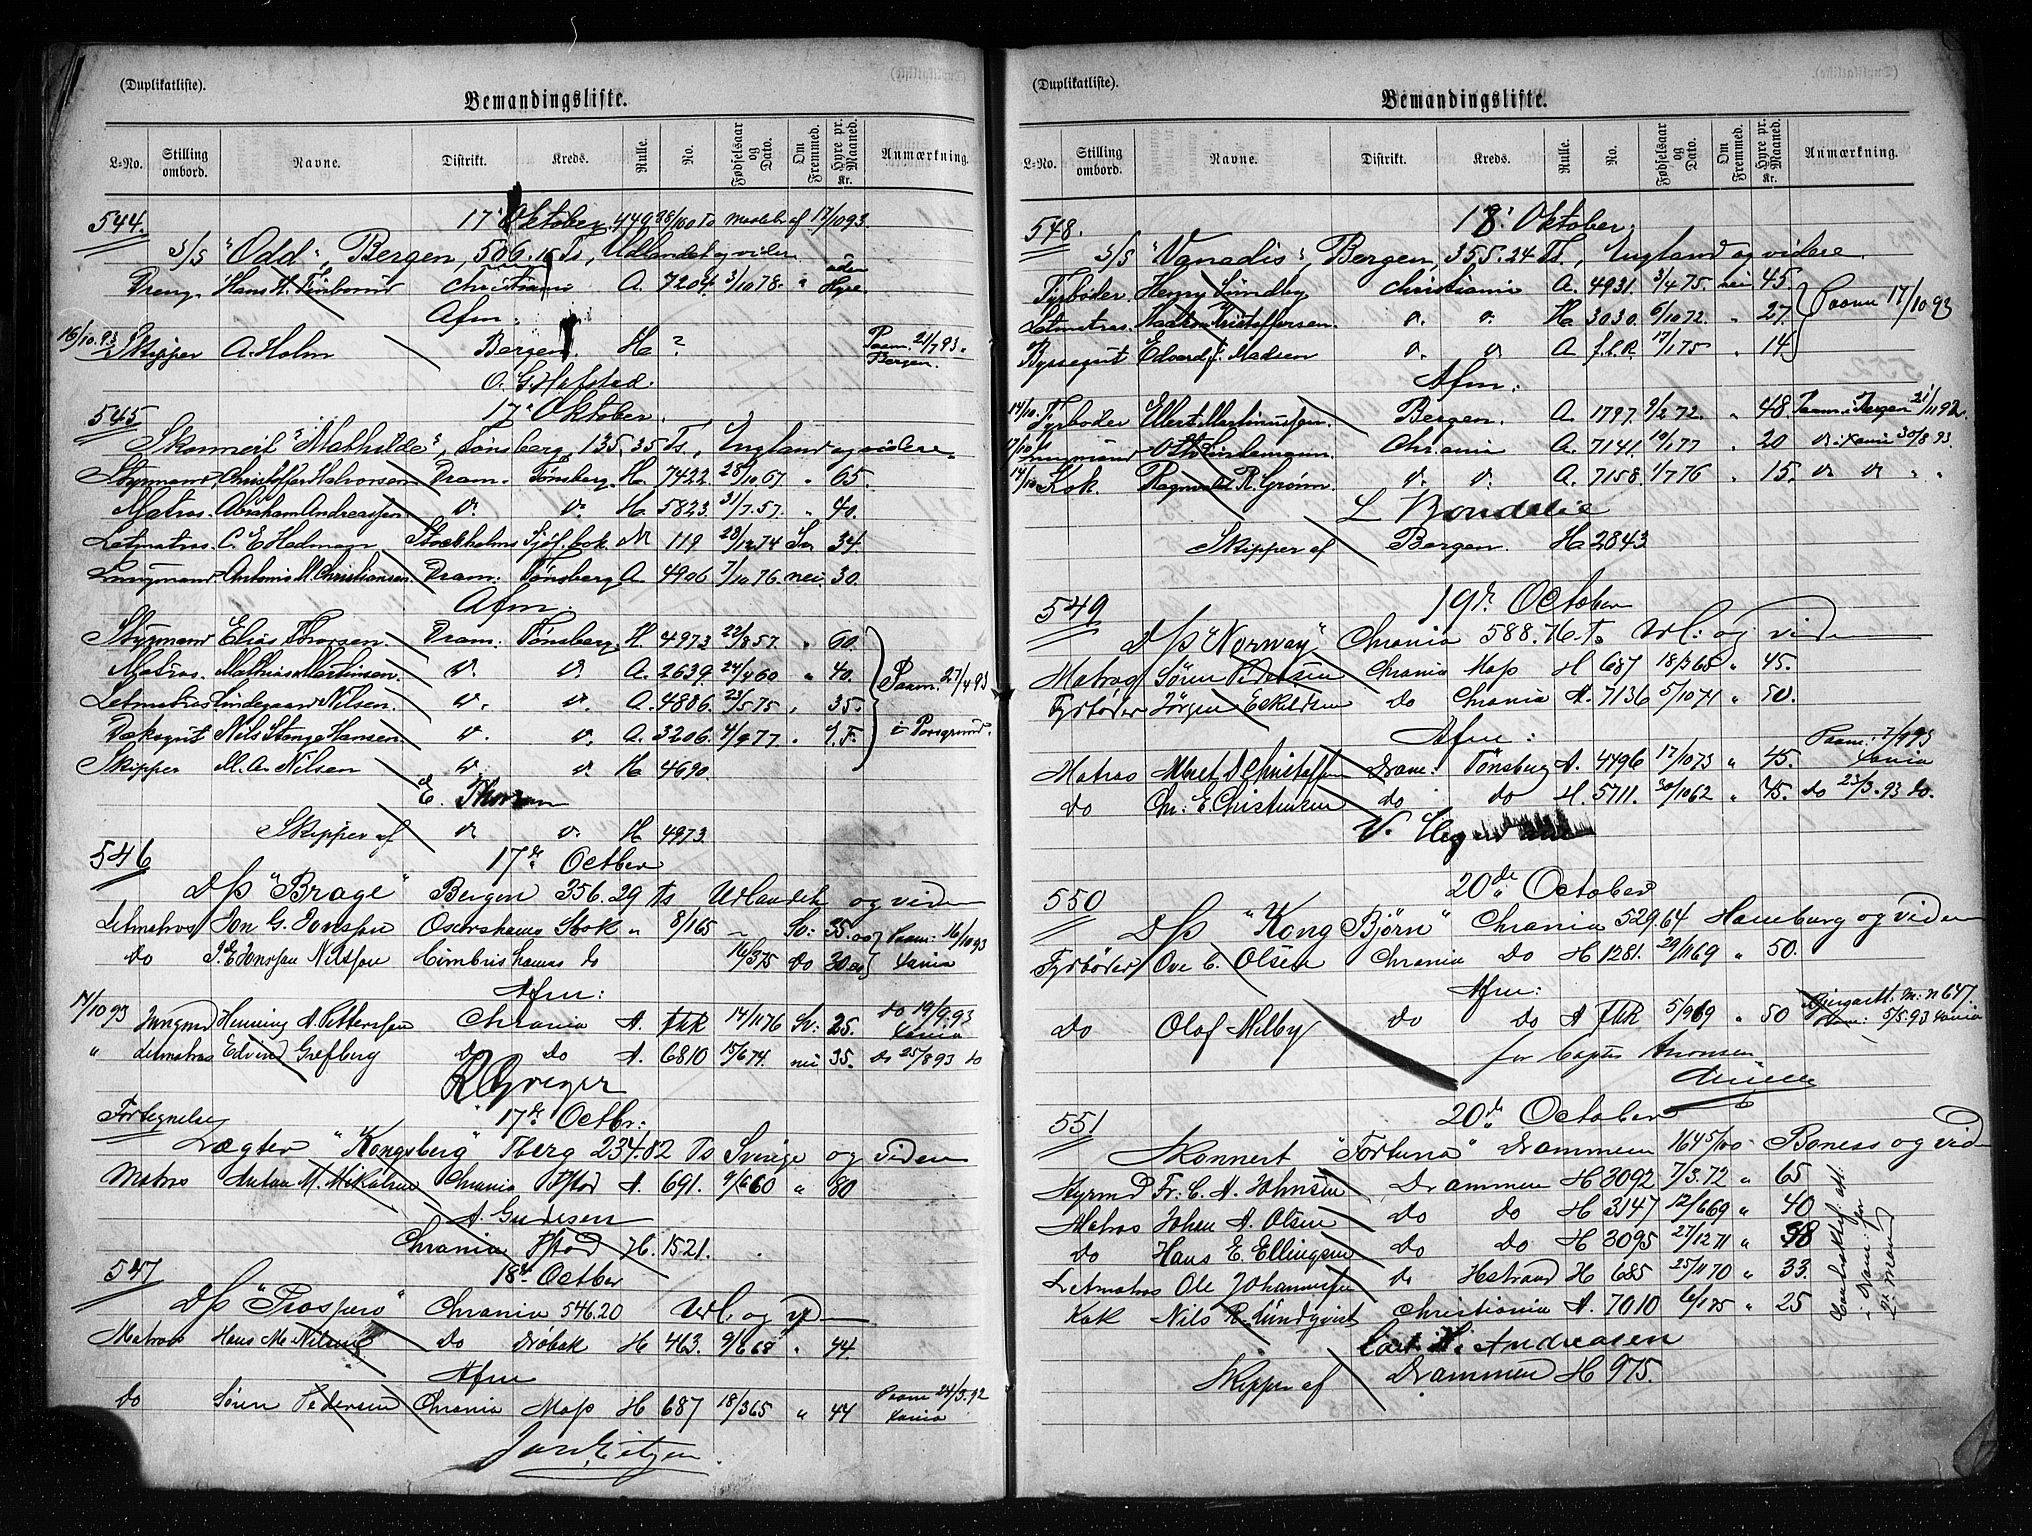 (Duplikatliste).
Bemandingsliste.
L-No. Stilling ombord. Navne. Distrikt. Kreds. Rulle. No. Fødselsaar og Dato. Om Fremmed. Hyre pr. Maaned. Kr. Anmærkning.
544. 17' Oktober 17/10 93.
S/S "Odd", Bergen, 506. Ts, Udlandet og videre
Dreng. Hans H. Christiania A. 7204. 3/10 78. " uden Hyre.
Afm.
16/10.93 Skipper A. Holm Bergen H ? Paam. 21/7 93. Bergen.
O. G. Hafstad.
545 17' Oktober.
Skonnert "Mathilde", Tønsberg, 135,35 Ts, England og videre.
Styrmand Christoffer Halvorsen Dram. Tønsberg. H. 7422 28/10 67 " 65.
Matros. Abraham Andreassen v. v. H 5823. 31/7.57. " 40.
Letmatros. C. E. Hedman Stockholms Sjöf. hok. M 119 28/12 74 Sv 34.
Jungmand Antonis M. Christiansen. Dram: Tønsberg A. 4906 7/10 76. nei 30.
Afm.
Styrmand Elias Thorsen. Dram: Tønsberg. H. 4973 22/8 57. " 60.
Matros. Mathias Martinsen. v. v. A. 2639. 24/4 60 " 40. Paam. 27/4 93
Letmatros Lindegaard Nilsen. v. v. A. 4886. 23/5 75 . 35. i Porsgrund.
Dæksgut Nils Stenge Hansen. v. v. A. 3206. 4/9 77. "
Skipper M. A. Nilsen v v H 4690.
E. Thorsen
Skipper af v. v. H 4973.
546 17de October
D/S "Brage" Bergen 356.29 Ts Udlandet og viden
Letmatros Jon G. Jonsson Oscarshamns Stok " 8/1 65 ~ Sv: 35.00 Paam: 16/10 93
do P. E. Jonsson Nilsson Cimbrishamns do 16/3 75 do 30.00 Xania
Afm:
14/10 93 Jungmd Henning A. Petterssen Chrania A. flR 14/11 76 Sv: 25. do 19/9.93 Xania
" Letmatros Edvind Grefberg do do A. 6810 15/6 74. nei 35. do 25/8 93 do
R Gregér
Fortegnelse 17de Octbr:
Lægter "Kongsberg" Tberg 234.02 Ts Sverige og viden
Matros Anton M. Mikalsen Chrania Fstad A. 691. 9/6 60 " 80
A. Gudesen
Chrania Fstad H. 1521.
547 18de Octber
D/S "Prospero" Chrania 546.20 Udl. og vd
Matros Hans M. Nilsen do Drøbak H 463. 9/6 68 " 44.
Afm
do Søren Pedersen Chrania Moss H 687 18/3 65 " 44 Paam 24/3.92 Xania
(Duplikatliste).
Bemandingsliste.
L-No. Stilling ombord. Navne. Distrikt. Kreds. Rulle. No. Fødselsaar og Dato. Om Fremmed. Hyre pr. Maaned. Kr. Anmærkning.
548. 18' Oktober.
S/S "Vanadis", Bergen, 355.24 Ts, England og videre.
Fyrbøder. Henry Sundby Christiania A. 4931. 3/4 75. nei 45. Paam 17/10 93
Letmatros. Haakon Kristoffersen. v. v. H. 3030. 6/10 72. " 27.
Byssegut Edvard J. Madsen v. v A f.l.R. 17/1 75 " 14.
Afm:
14/10. Fyrbøder Ellert Martinussen. Bergen. A. 1797. 9/2 72 " 48 Paam. i Bergen 21/11 92.
17/10 Jungmand Otto Lindemann. Chrania A. 7141. 10/1 77 " 20 v. i Xania 30/8 93.
14/10 Kok. Ragnvald R. Grønn. v. v. A. 7158. 1/7 76 " 15. v v "
L Bondelie
Skipper af Bergen. H 2843
549 19de October
D/S "Norway" Chrania 588.76 Ts Udl: og viden
Matros Søren Pedersen Chrania Moss H 687 18/3 65 " 45.
Fyrbøder Jörgen Eskildsen do Chrania A. 7136 5/10 74 " 50.
Afm:
Matros Albret D Christoffersen Dram: Tönsberg A. 4496 17/10 73 " 45. Paam: 7/9 93 Xania
do Chr: E. Christensen do do H. 5711. 30/10 62 " 45. do 23/3.93 do.
550 20de October
D/S "Kong Björn" Chrania 529.64 Hamburg og viden
Fyrböder Ove C. Olsen Chrania do H 1281. 29/11 69 " 50.
Afm:
do Olaf Melby do do A flR 5/9 69 " 50 m: n 647. Paam: 5/5.93 Xania
for Captn Aronsen
551 20de October
Skonnert "Fortuna" Drammen 164 5/100 Boness og vid
Styrmd Fr. C. A. Johnsen Drammen H 3092 7/3.72 " 65
Matros Johan A. Olsen do do H 3147 12/6 69 " 40
do Hans E. Ellingsen do do H 3095 27/12 71 " 38
Letmatros Ole Johannesen do Hstrand H 685 25/11 70 " 33.
Kok Nils R. Lundqvist Christiania A. 7010 6/1 75 " 25
Contraktsf. aft. i Dram: for 2: mand
Carl H. Andreasen
Skipper af Drammen H 975.